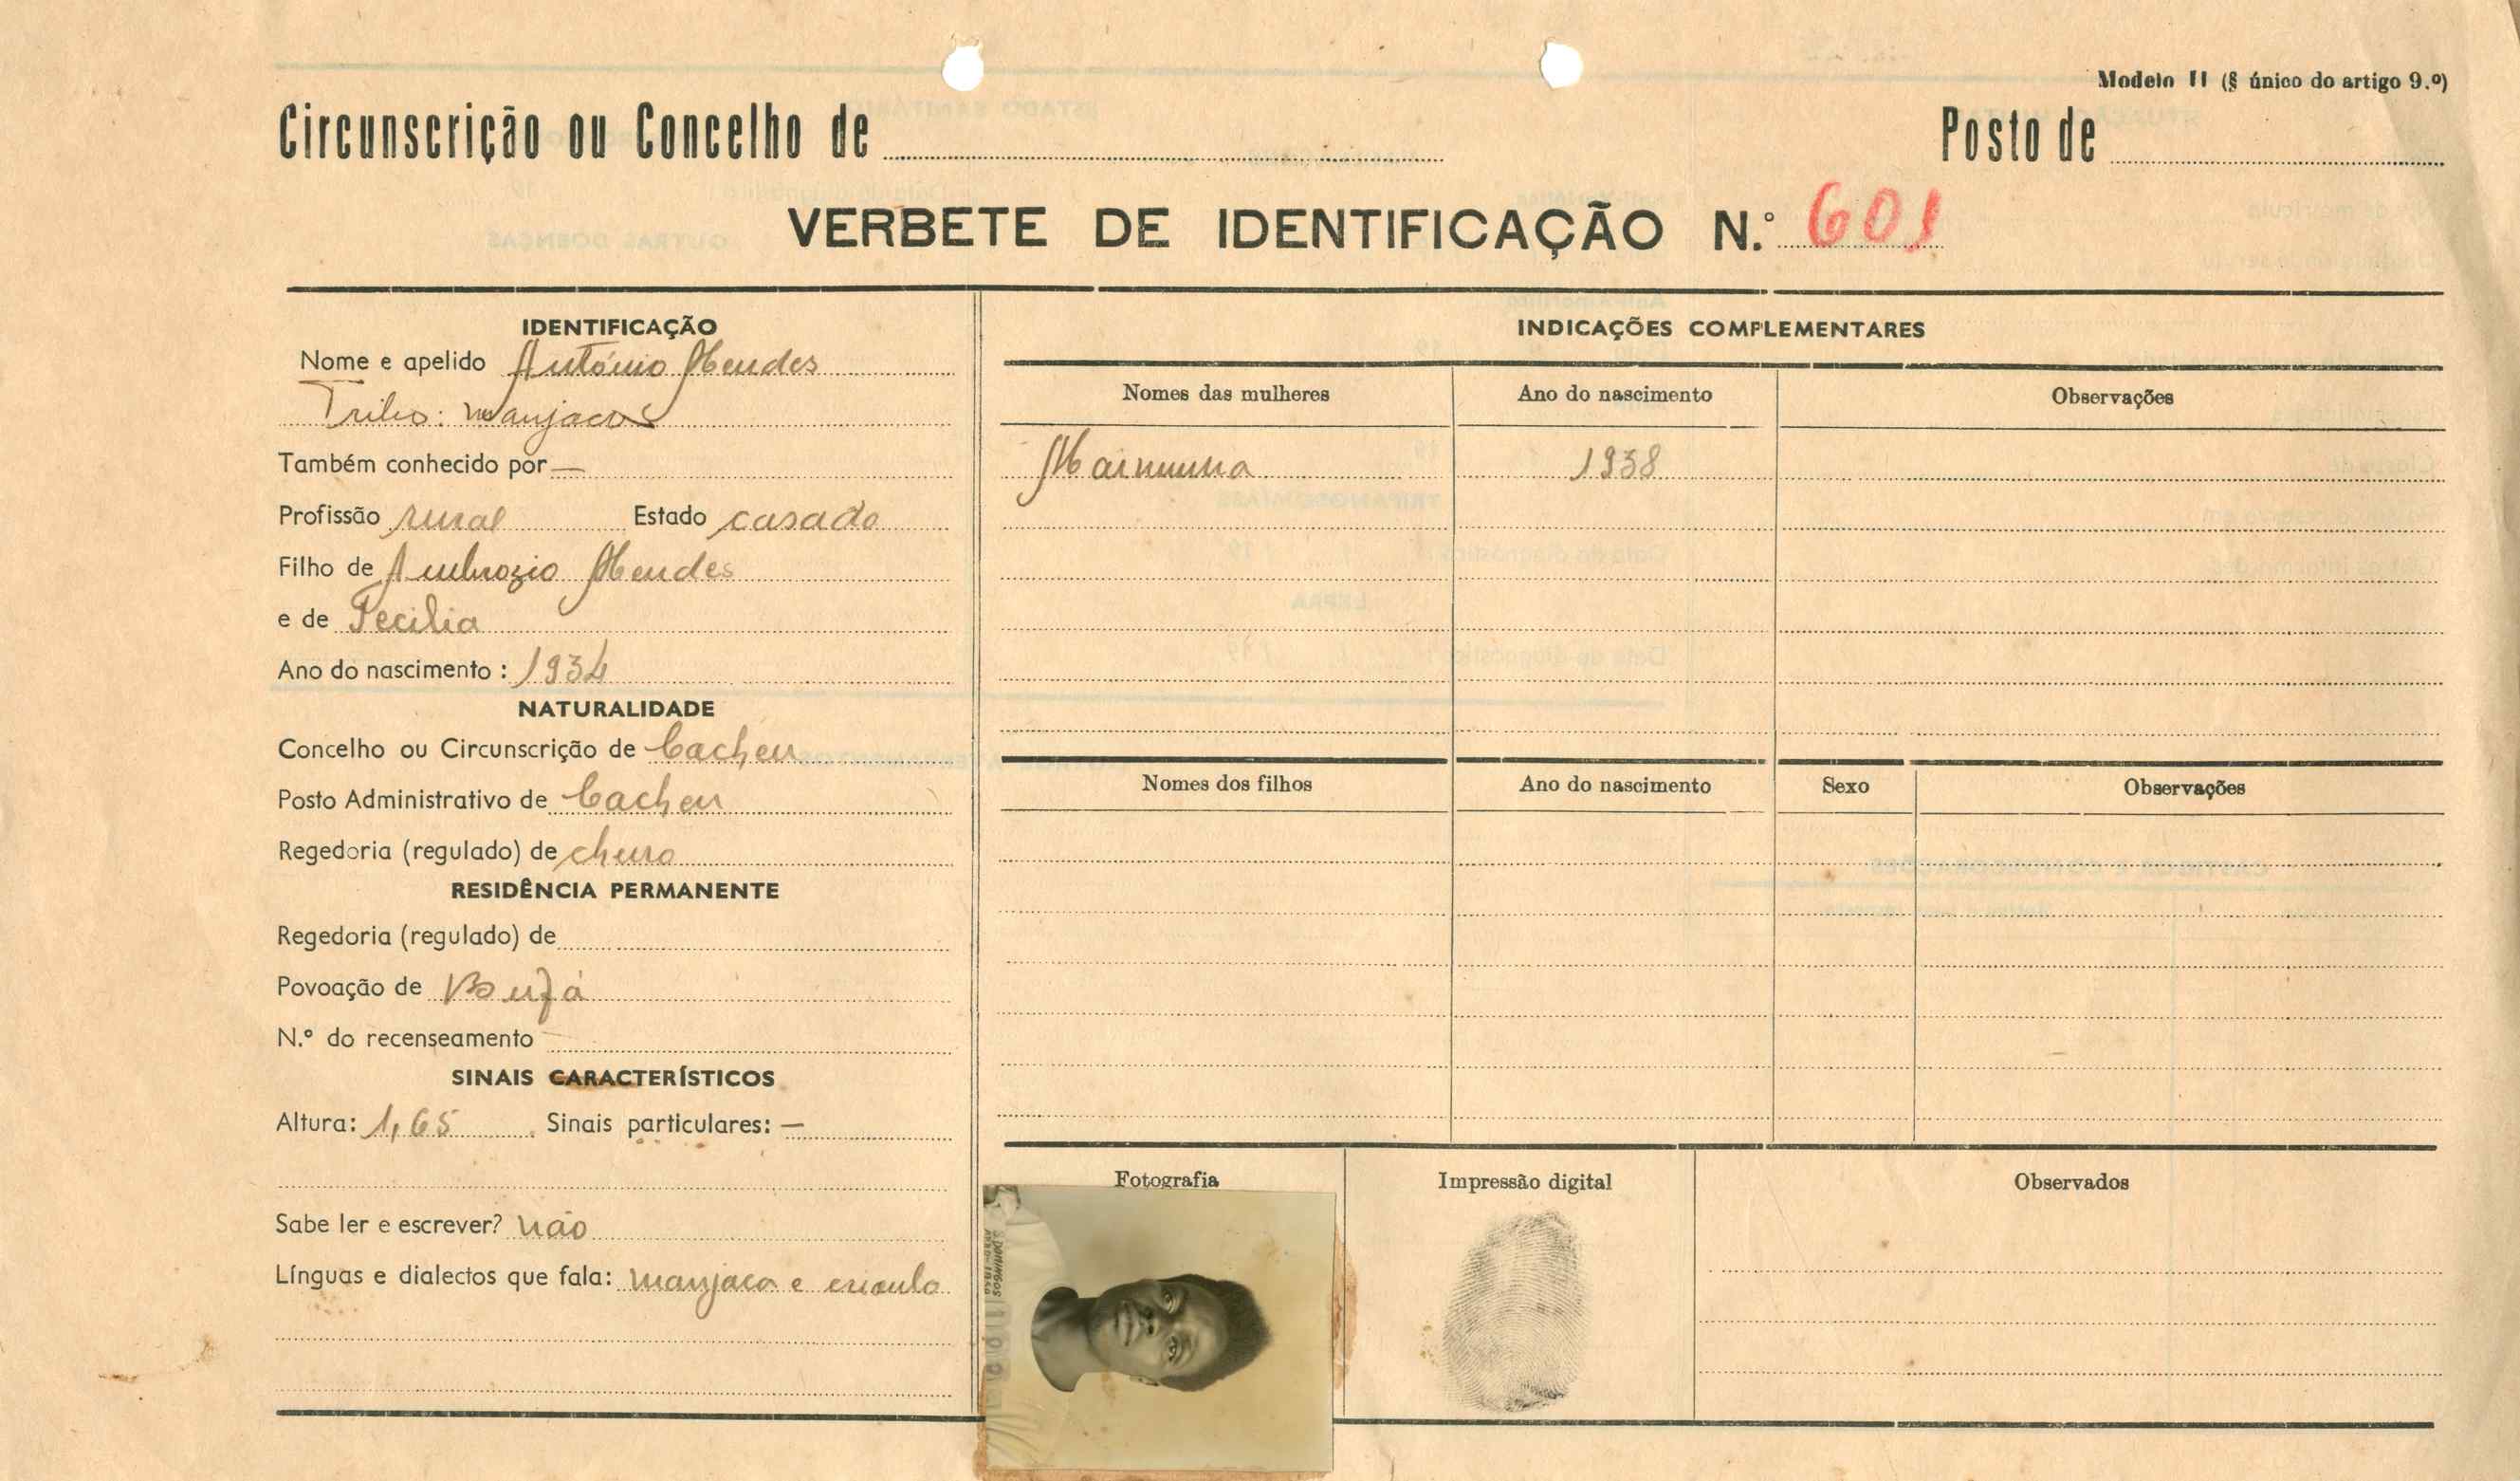 Modelo II (§ único do artigo 9.º)
Circunscrição ou Concelho de Posto de
VERBETE DE IDENTIFICAÇÃO N.º 601
IDENTIFICAÇÃO
Nome e apelido António Mendes
Tribo: manjaco
Também conhecido por —
Profissão rural Estado casado
Filho de Ambrozio Mendes
e de Cecilia
Ano do nascimento: 1934
NATURALIDADE
Concelho ou Circunscrição de Cacheu
Posto Administrativo de Cacheu
Regedoria (regulado) de churo
RESIDÊNCIA PERMANENTE
Regedoria (regulado) de
Povoação de
N.º do recenseamento —
SINAIS CARACTERÍSTICOS
Altura: 1,65 Sinais particulares: —
Sabe ler e escrever? não
Línguas e dialectos que fala: manjaco e crioulo
INDICAÇÕES COMPLEMENTARES
Nomes das mulheres Ano do nascimento Observações
Maimuna 1938
Nomes dos filhos Ano do nascimento Sexo Observações
Fotografia Impressão digital Observados
DOMINGOS